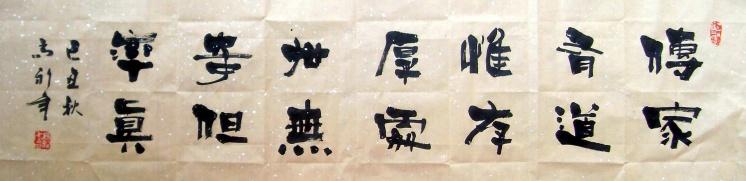 傳家
有道
惟存
厚處
世無
奇但
率眞
己丑秋